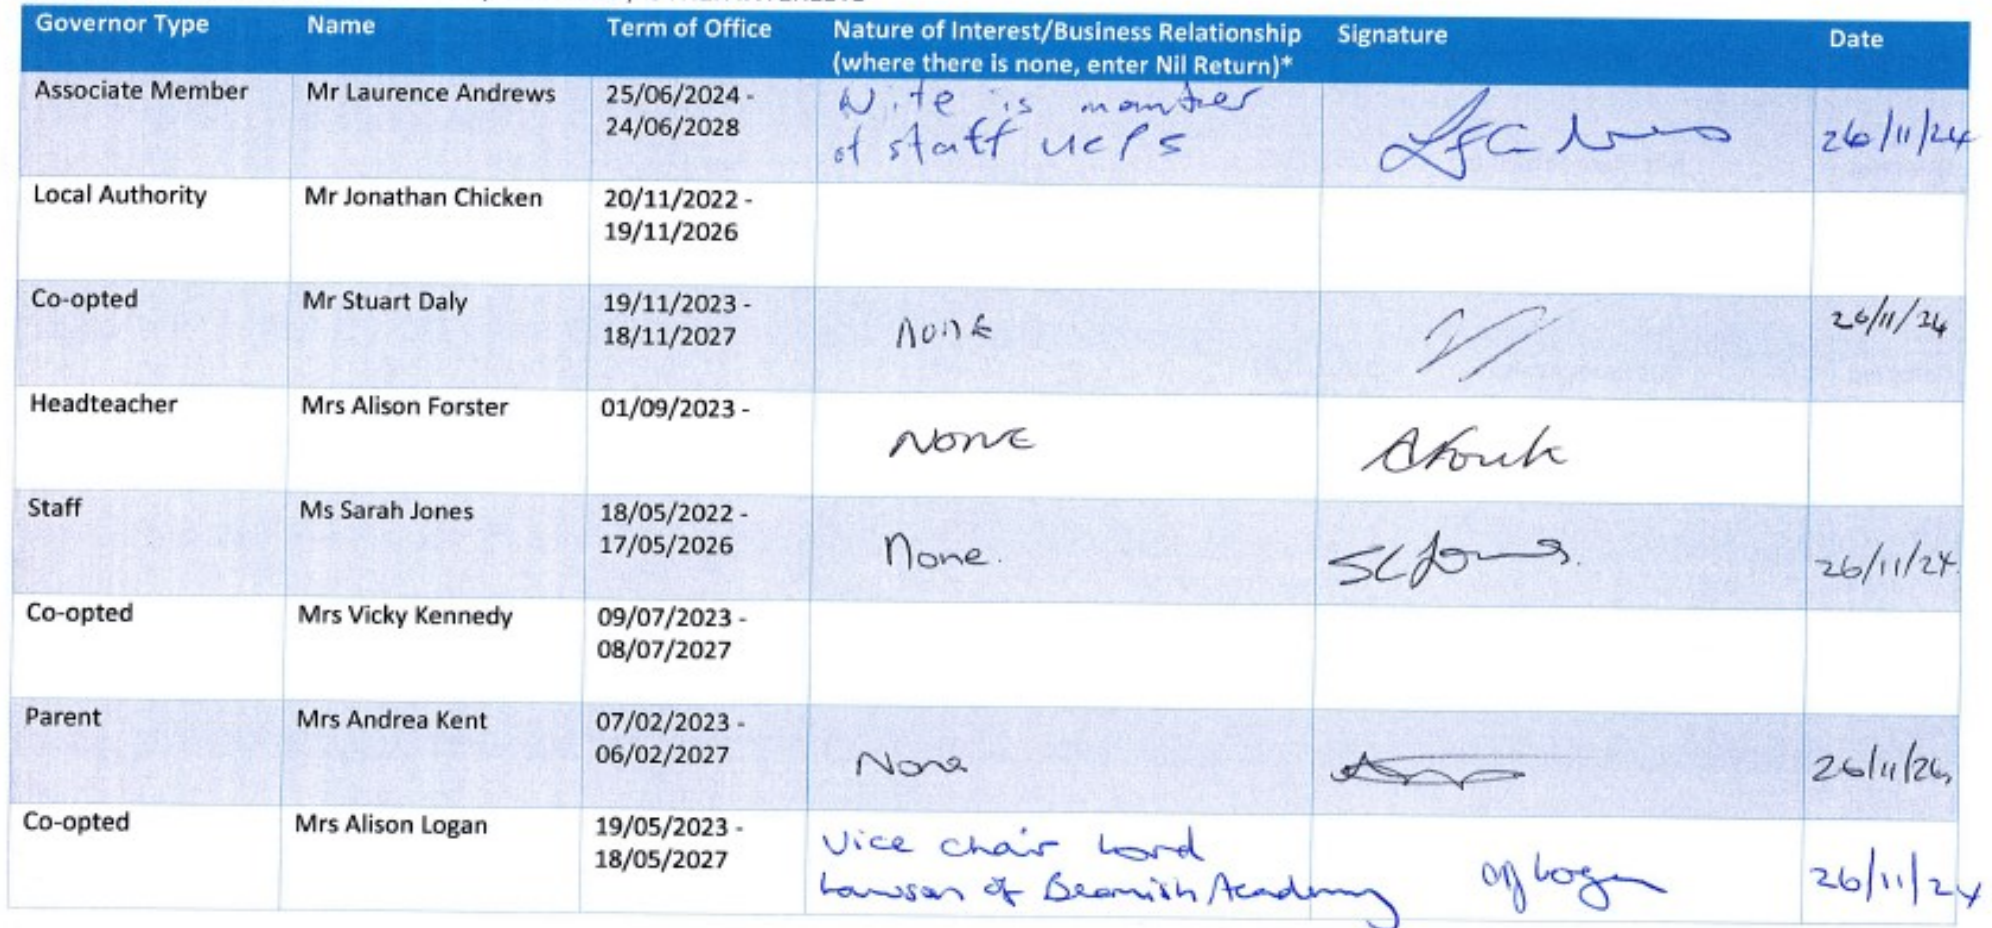 Governor Type Name Term of Office Nature of Interest/Business Relationship Signature Date
(where there is none, enter Nil Return)*
Associate Member Mr Laurence Andrews 25/06/2024 - Wife is member 26/11/24
24/06/2028 of staff UCPS
Local Authority Mr Jonathan Chicken 20/11/2022 -
19/11/2026
Co-opted Mr Stuart Daly 19/11/2023 - none 26/11/24
18/11/2027
Headteacher Mrs Alison Forster 01/09/2023 -
NONE
Staff Ms Sarah Jones 18/05/2022 -
17/05/2026 None. SCJones. 26/11/24.
Co-opted Mrs Vicky Kennedy 09/07/2023 -
08/07/2027
Parent Mrs Andrea Kent 07/02/2023 -
06/02/2027 None 26/11/24
Co-opted Mrs Alison Logan 19/05/2023 - Vice chair Lord
18/05/2027 Lawson of Beamish Academy Logan 26/11/24